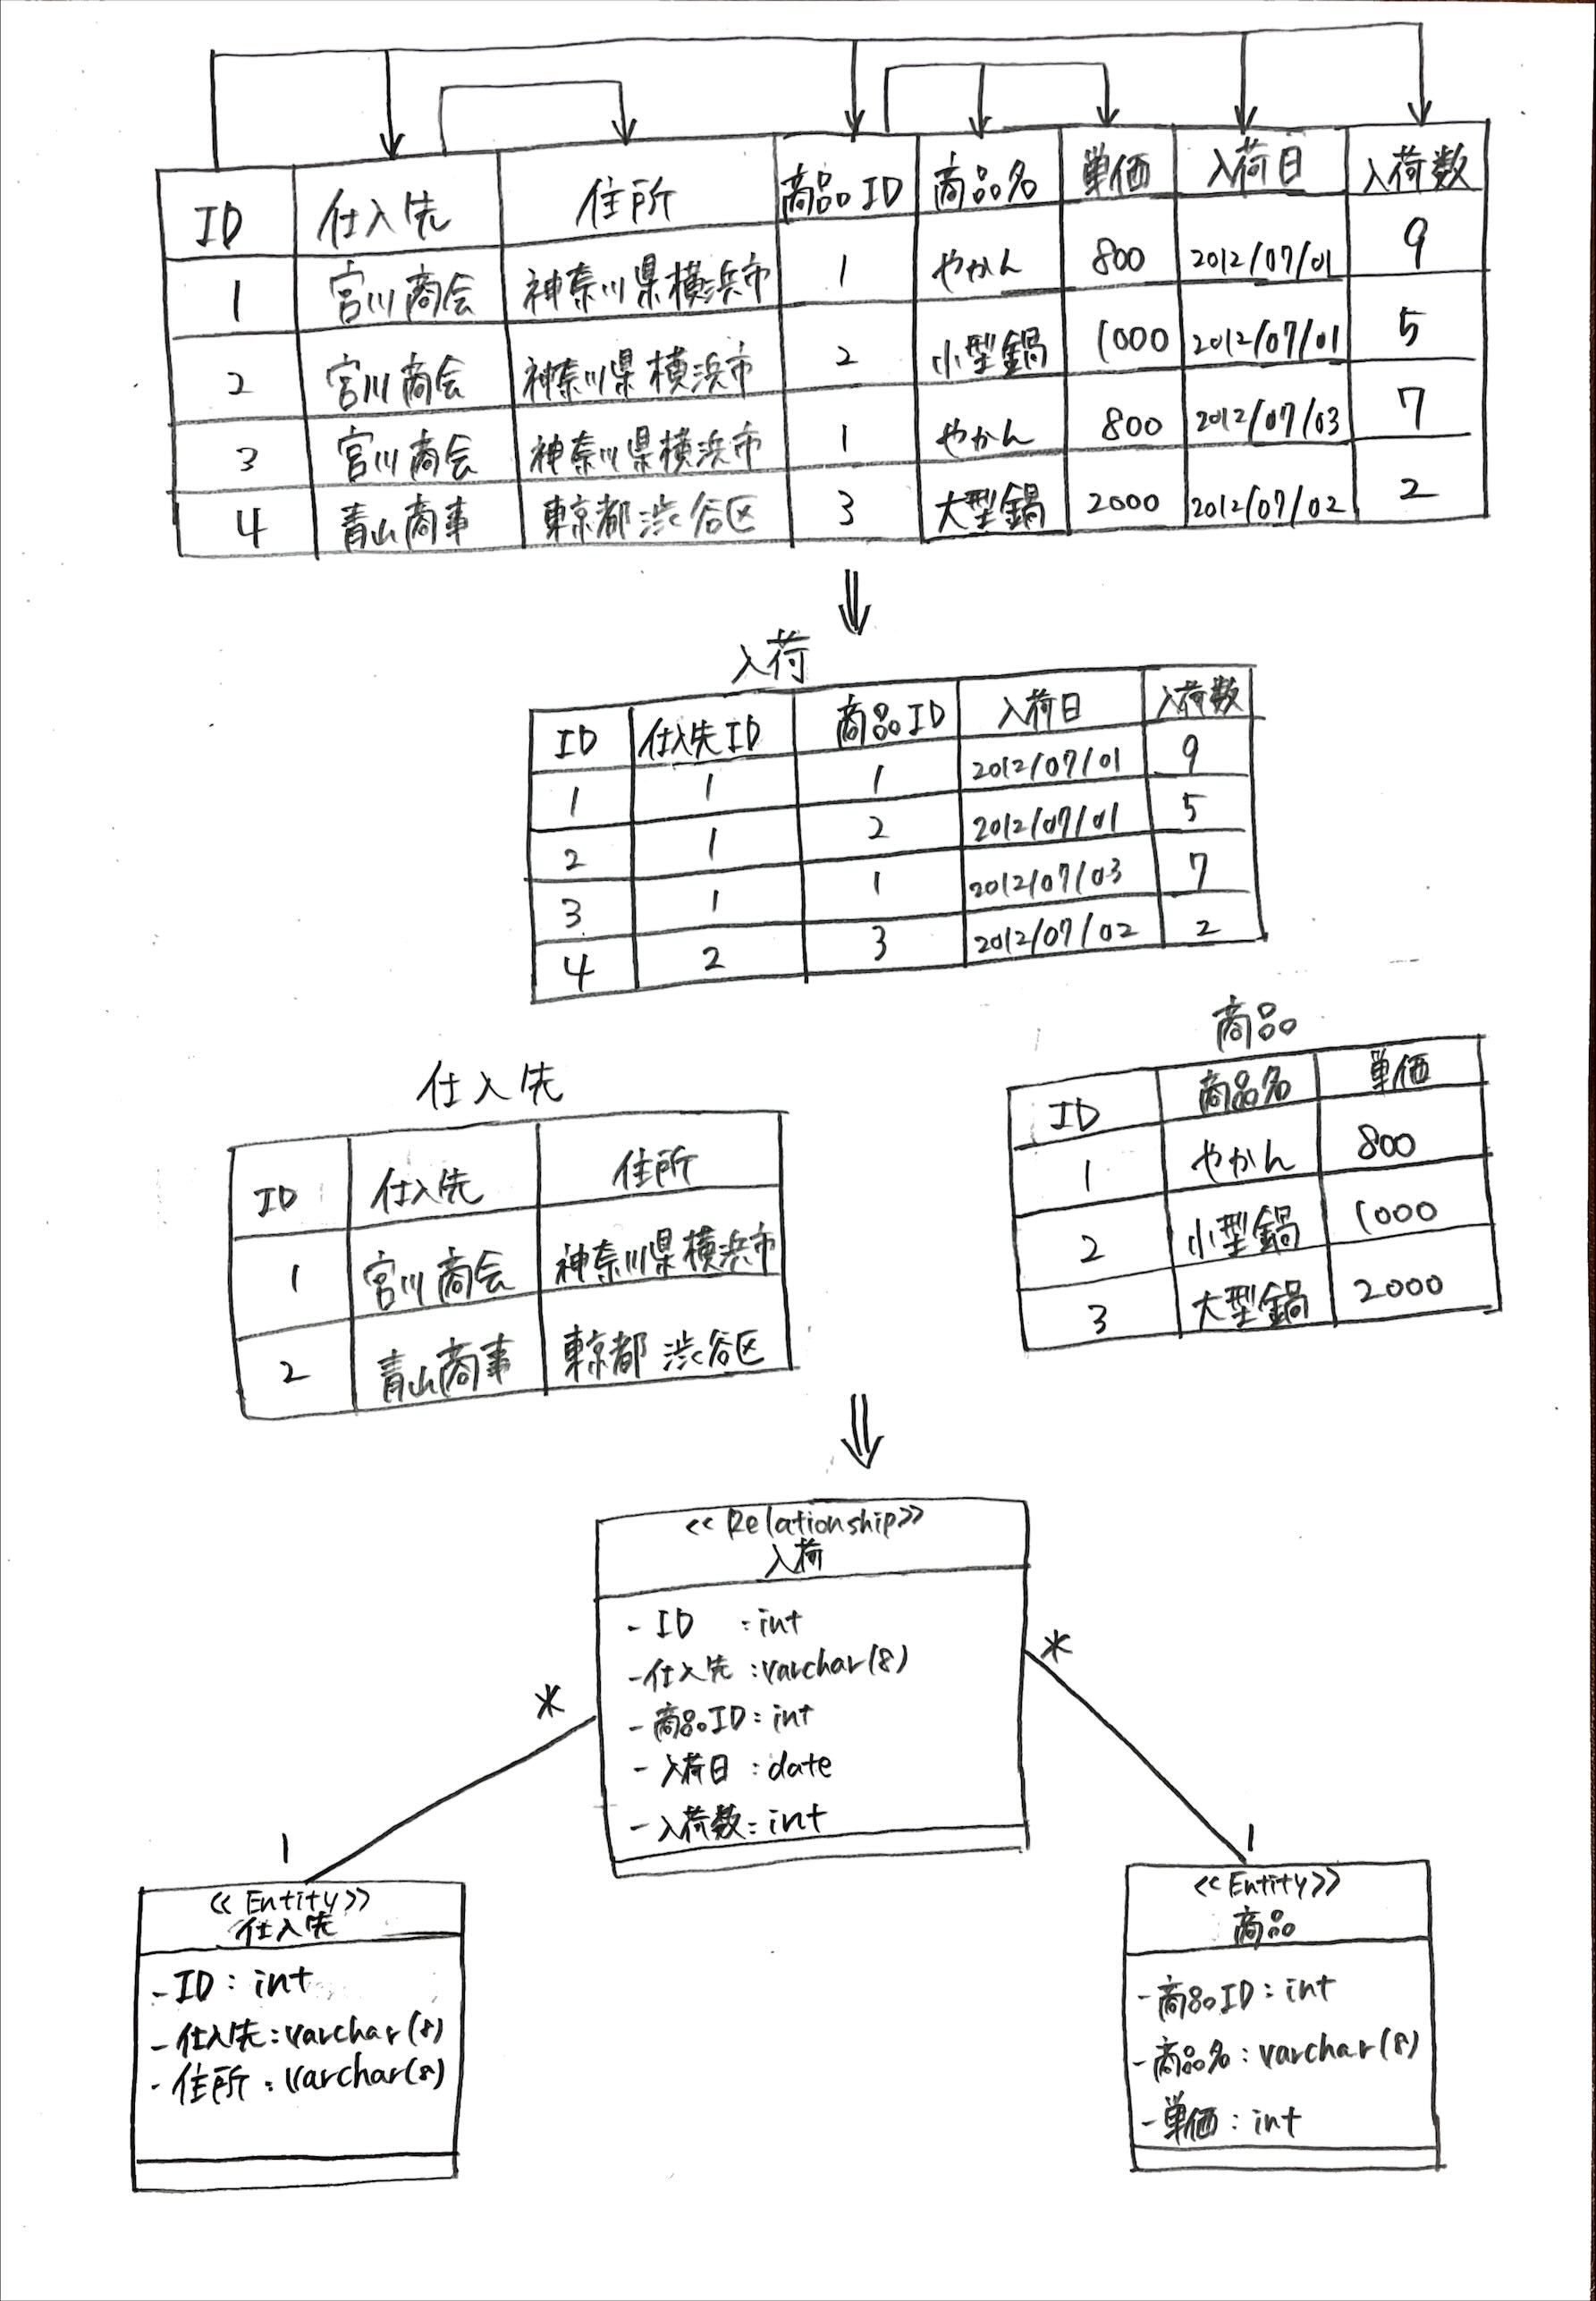 ID 仕入先 住所 商品ID 商品名 単価 入荷日 入荷数
1 宮川商会 神奈川県横浜市 1 やかん 800 2012/07/01 9
2 宮川商会 神奈川県横浜市 2 小型鍋 1000 2012/07/01 5
3 宮川商会 神奈川県横浜市 1 やかん 800 2012/07/03 7
4 青山商事 東京都渋谷区 3 大型鍋 2000 2012/07/02 2
入荷
ID 仕入先ID 商品ID 入荷日 入荷数
1 1 1 2012/07/01 9
2 1 2 2012/07/01 5
3 1 1 2012/07/03 7
4 2 3 2012/07/02 2
仕入先
ID 仕入先 住所
1 宮川商会 神奈川県横浜市
2 青山商事 東京都渋谷区
商品
ID 商品名 単価
1 やかん 800
2 小型鍋 1000
3 大型鍋 2000
<< Relationship>>
入荷
- ID : int
- 仕入先 : varchar(8)
- 商品ID : int
- 入荷日 : date
- 入荷数 : int
*
*
1
1
<< Entity>>
仕入先
- ID : int
- 仕入先 : varchar(8)
- 住所 : varchar(8)
<< Entity>>
商品
- 商品ID : int
- 商品名 : varchar(8)
- 単価 : int